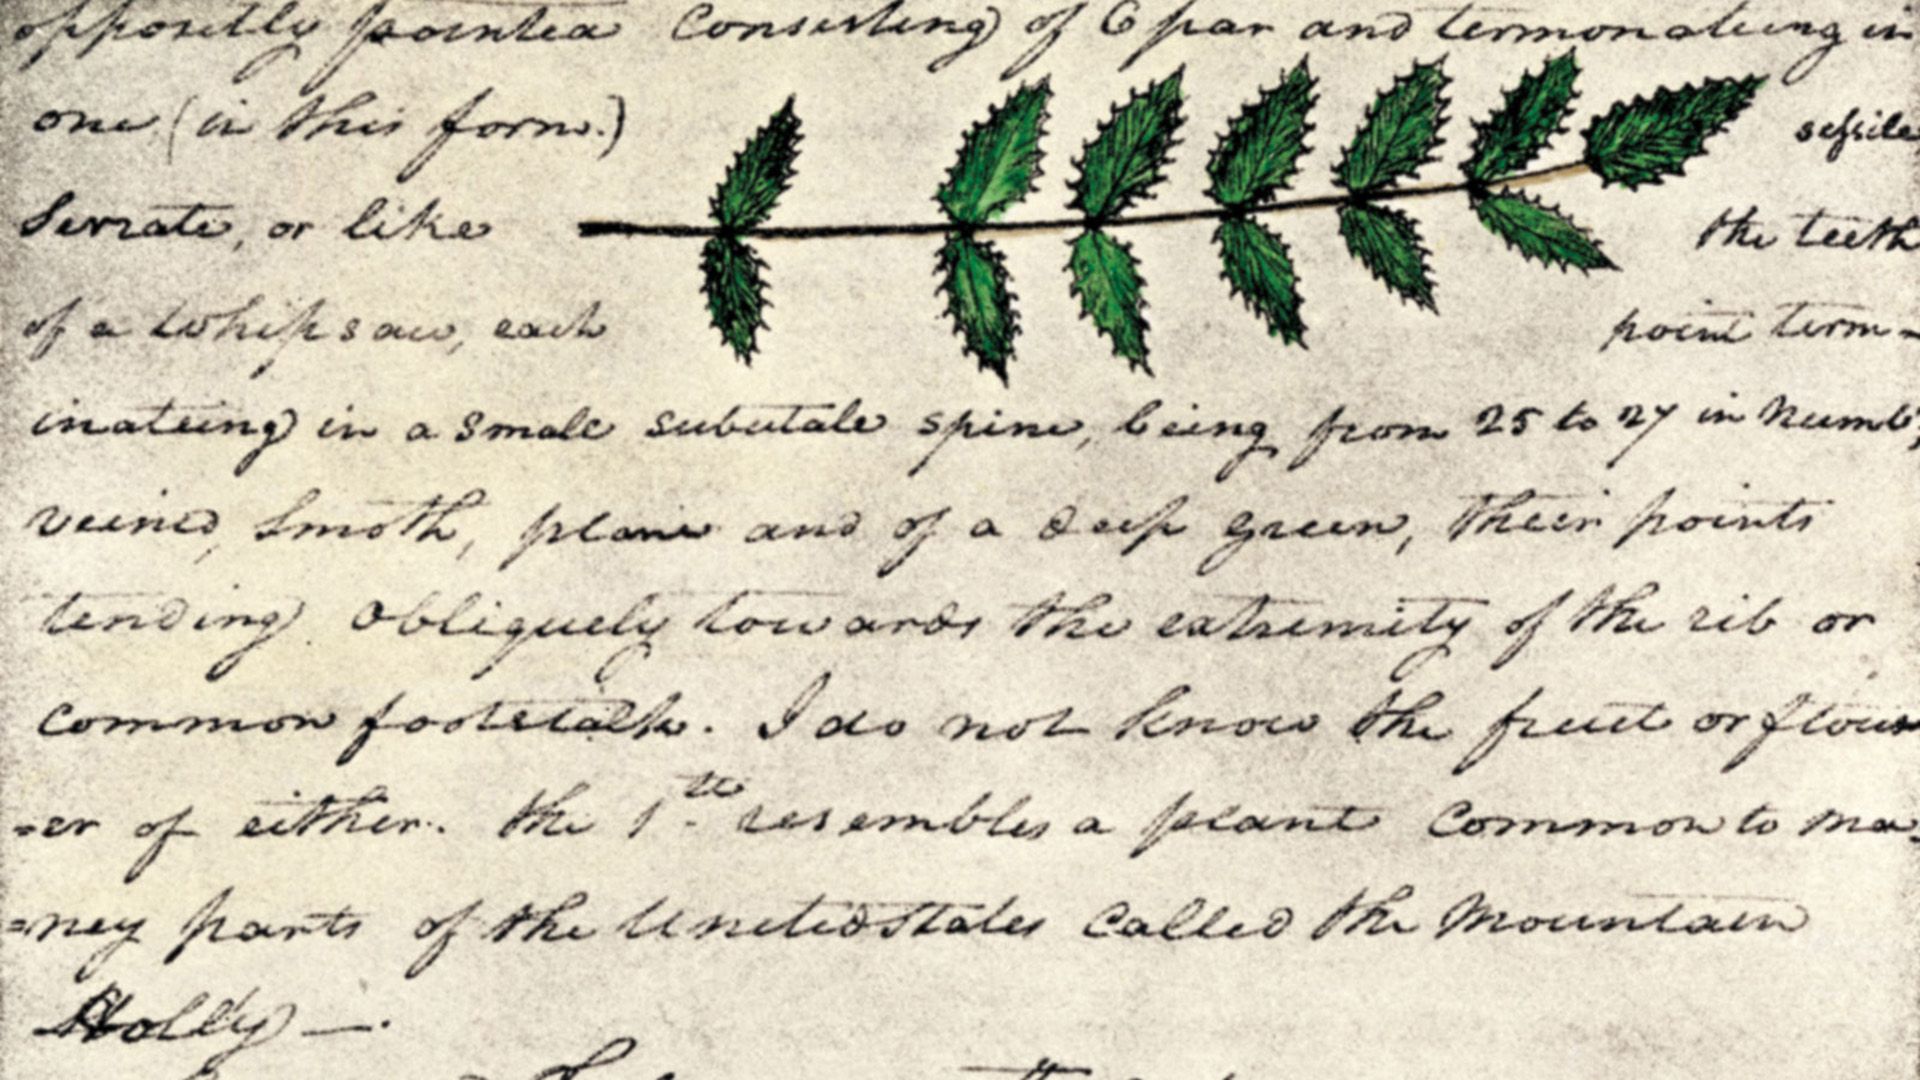 oppositly pointed Consisting of 6 par and termonateing in
one (in this form.) sessile
Serrate, or like the teeth
of a whipsaw, each point term-
inateing in a small subulate spine, being from 25 to 27 in Numb;
veined, Smoth, plane and of a deep green, their points
tending obliquely towards the extremity of the rib or
common footstalk. I do not know the fruit or flow
=er of either. the 1st resembles a plant Common to ma=
=ney parts of the United States Called the Mountain
Holly —.